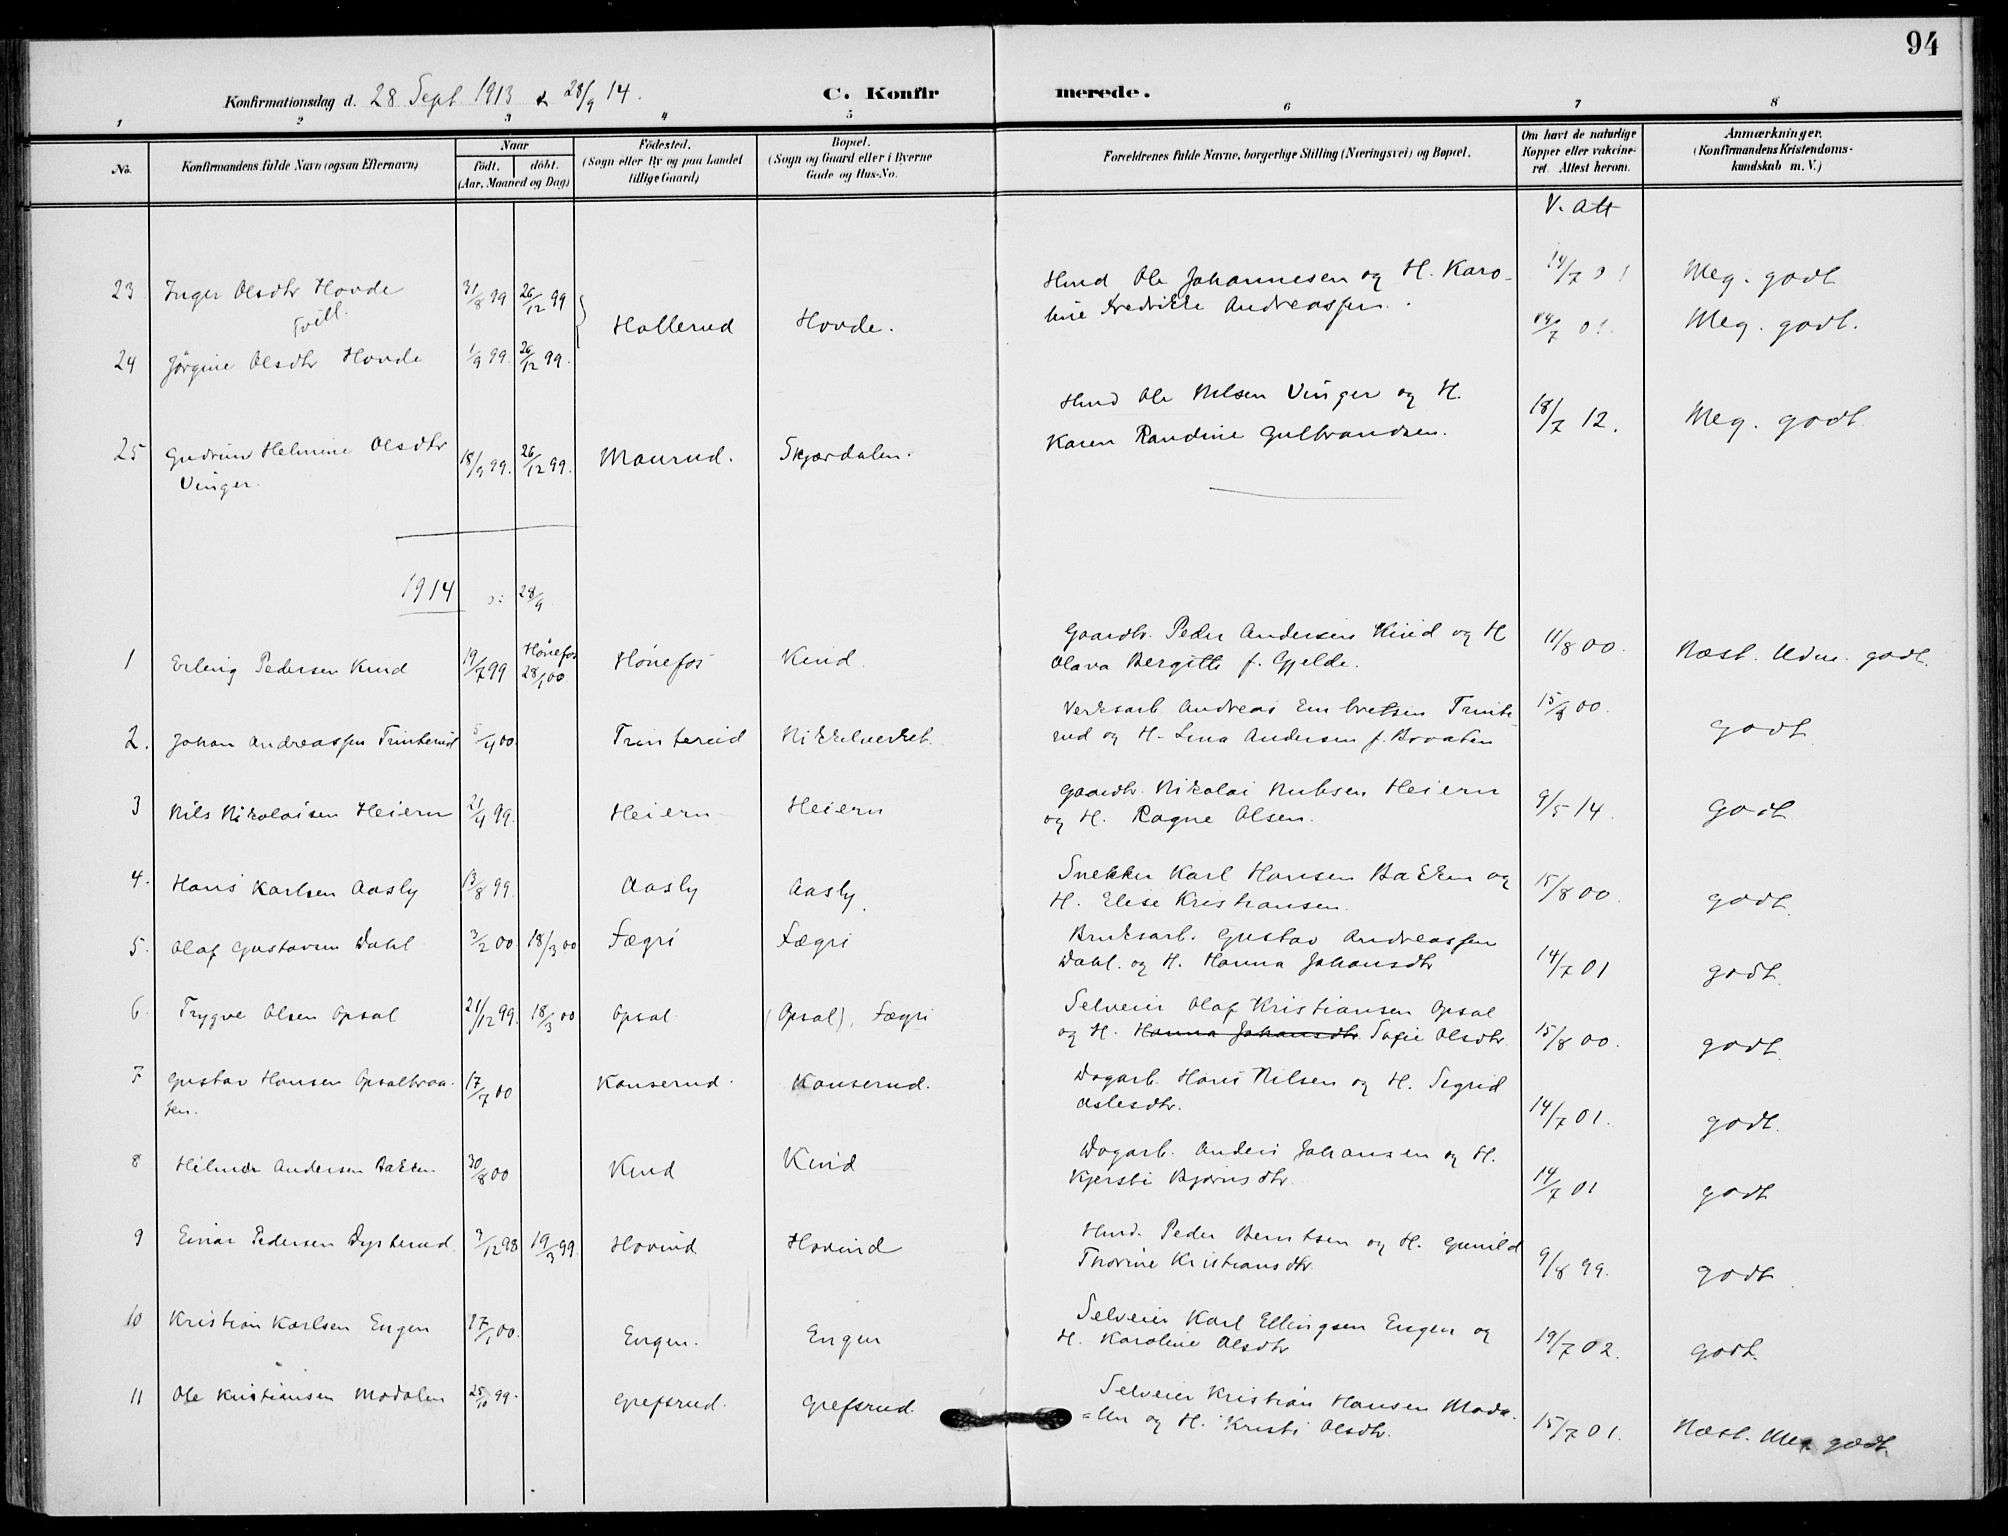 94
Konfirmationsdag d. 28 Sept 1913 & 28/9 14. C. Konfir merede.
1 2 3 4 5 6 7 8
No. Konfirmandens fulde Navn (ogsaa Efternavn)
Naar
født. døbt.
(Aar, Maaned og Dag)
Fødested.
(Sogn eller By og paa Landet
tillige Gaard)
Bopæl.
(Sogn og Gaard eller i Byerne
Gade og Hus-No.
Forældrenes fulde Navne, borgerlige Stilling (Næringsvei) og Bopæl.
Om havt de naturlige
Kopper eller vakcine-
ret. Attest herom.
Anmærkninger.
(Konfirmandens Kristendoms-
kundskab m. V.)
V. Att
23 Inger Olsdtr Hovde 31/8 99 26/12 99 Hollerud Hovde. Hmd Ole Johannesen og H. Karo- 14/7 01 Meg. godt
Tvill. line Fredrikke Andreassen. 14/7 01. Meg. godt.
24 Jørgine Olsdtr Hovde 1/9 99. 26/12 99.
25 Gudrun Helmine Olsdtr 18/9 99. 26/12 99. Maurud. Skjærdalen. Hmd Ole Nilsen Vinger og H. 18/7 12. Meg. godt
Vinger. Karen Randine Gulbrandsen.
1914 28/9
1 Erling Pedersen Kind 19/7 99 Hönefos Hönefos Kind. Gaardbr. Peder Andersen Kind og H 11/8 00. Næst. Udm. godt.
28/1 00. Olava Bergitte f. Gjelde.
2. Johan Andreassen Trinterud 5/4 00. Trinterud Nikkelverket. Verksarb Andreas Embretsen Trinte- 15/8 00. godt.
rud og H. Lina Andersen f. Braaten
3 Nils Nikolaisen Heiern 21/4 99. Heiern Heiern Gaardbr. Nikolai Nubsen Heiern 9/5 14. godt
og H. Ragne Olsen.
4. Hans Karlsen Aasly 13/8 99. Aasly Aasly. Snekker Karl Hansen Bakken og 15/8 00. godt.
H. Elise Kristiansen.
5. Olaf Gustavsen Dahl 3/2 00 18/3 00 Fægri Fægri Bruksarb. Gustav Andreassen
Dahl. og H. Hanna Johansdtr 14/7 01 godt.
6. Trygve Olsen Opsal 21/12 99. 18/3 00 Opsal. (Opsal), Fægri Selveier Olaf Kristiansen Opsal
og H. Hanna Johansdtr. Sofie Olsdtr. 15/8 00. godt.
7 Gustav Hansen Opsalbraa- 17/7 00 Kanserud. Kanserud. Dagarb. Hans Nilsen og H. Sigrid
ten. Aslesdtr. 14/7 01. godt.
8 Hilmar Andersen Bakken 30/8 00 Kind Kind Dagarb. Anders Johansen og H.
Kjersti Bjørnsdtr. 14/7 01 godt
9 Einar Pedersen Dysterud 3/12 98 19/3 99. Hovind Hovind Hmd. Peder Berntsen og H. Gunild
Thorine Kristiansdtr. 9/8 99. godt
10 Kristian Karlsen Engen 27/1 00. Engen. Engen Selveier Karl Ellingsen Engen og
H. Karoline Olsdtr 19/7 02. godt.
11 Ole Kristiansen Modalen 25/10 99. Grefsrud. Grefsrud. Selveier Kristian Hansen Moda-
=len og H. Kristi Olsdtr. 15/7 01. Næst. Meg godt.